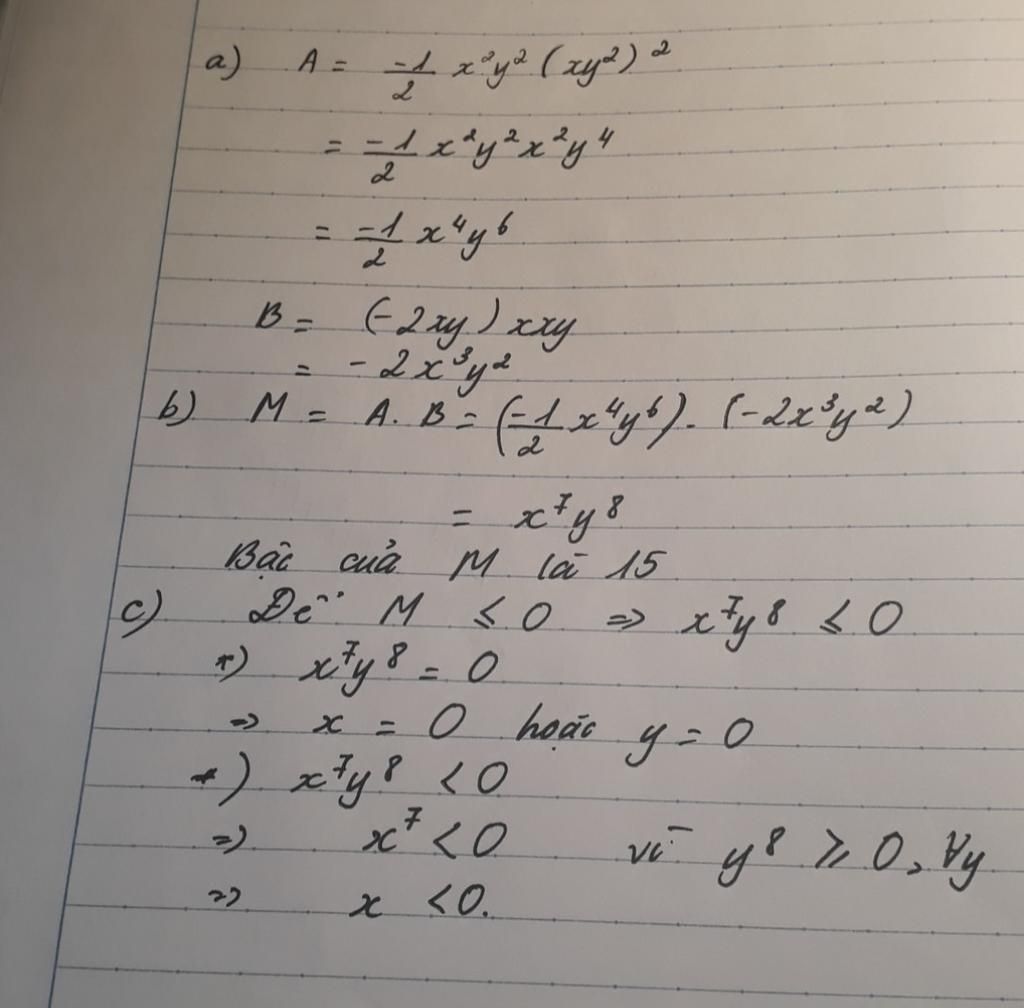 a) A = -1/2 x²y² (xy²)²
= -1/2 x²y²x²y⁴
= -1/2 x⁴y⁶
B = (-2xy) xxy
= -2x³y²
b) M = A. B = (-1/2 x⁴y⁶). (-2x³y²)
= x⁷y⁸
Bậc của M là 15
c) Để M ≤ 0 => x⁷y⁸ ≤ 0
*) x⁷y⁸ = 0
=> x = 0 hoặc y = 0
*) x⁷y⁸ < 0
=> x⁷ < 0 vì y⁸ ≥ 0, ∀y
=> x < 0.